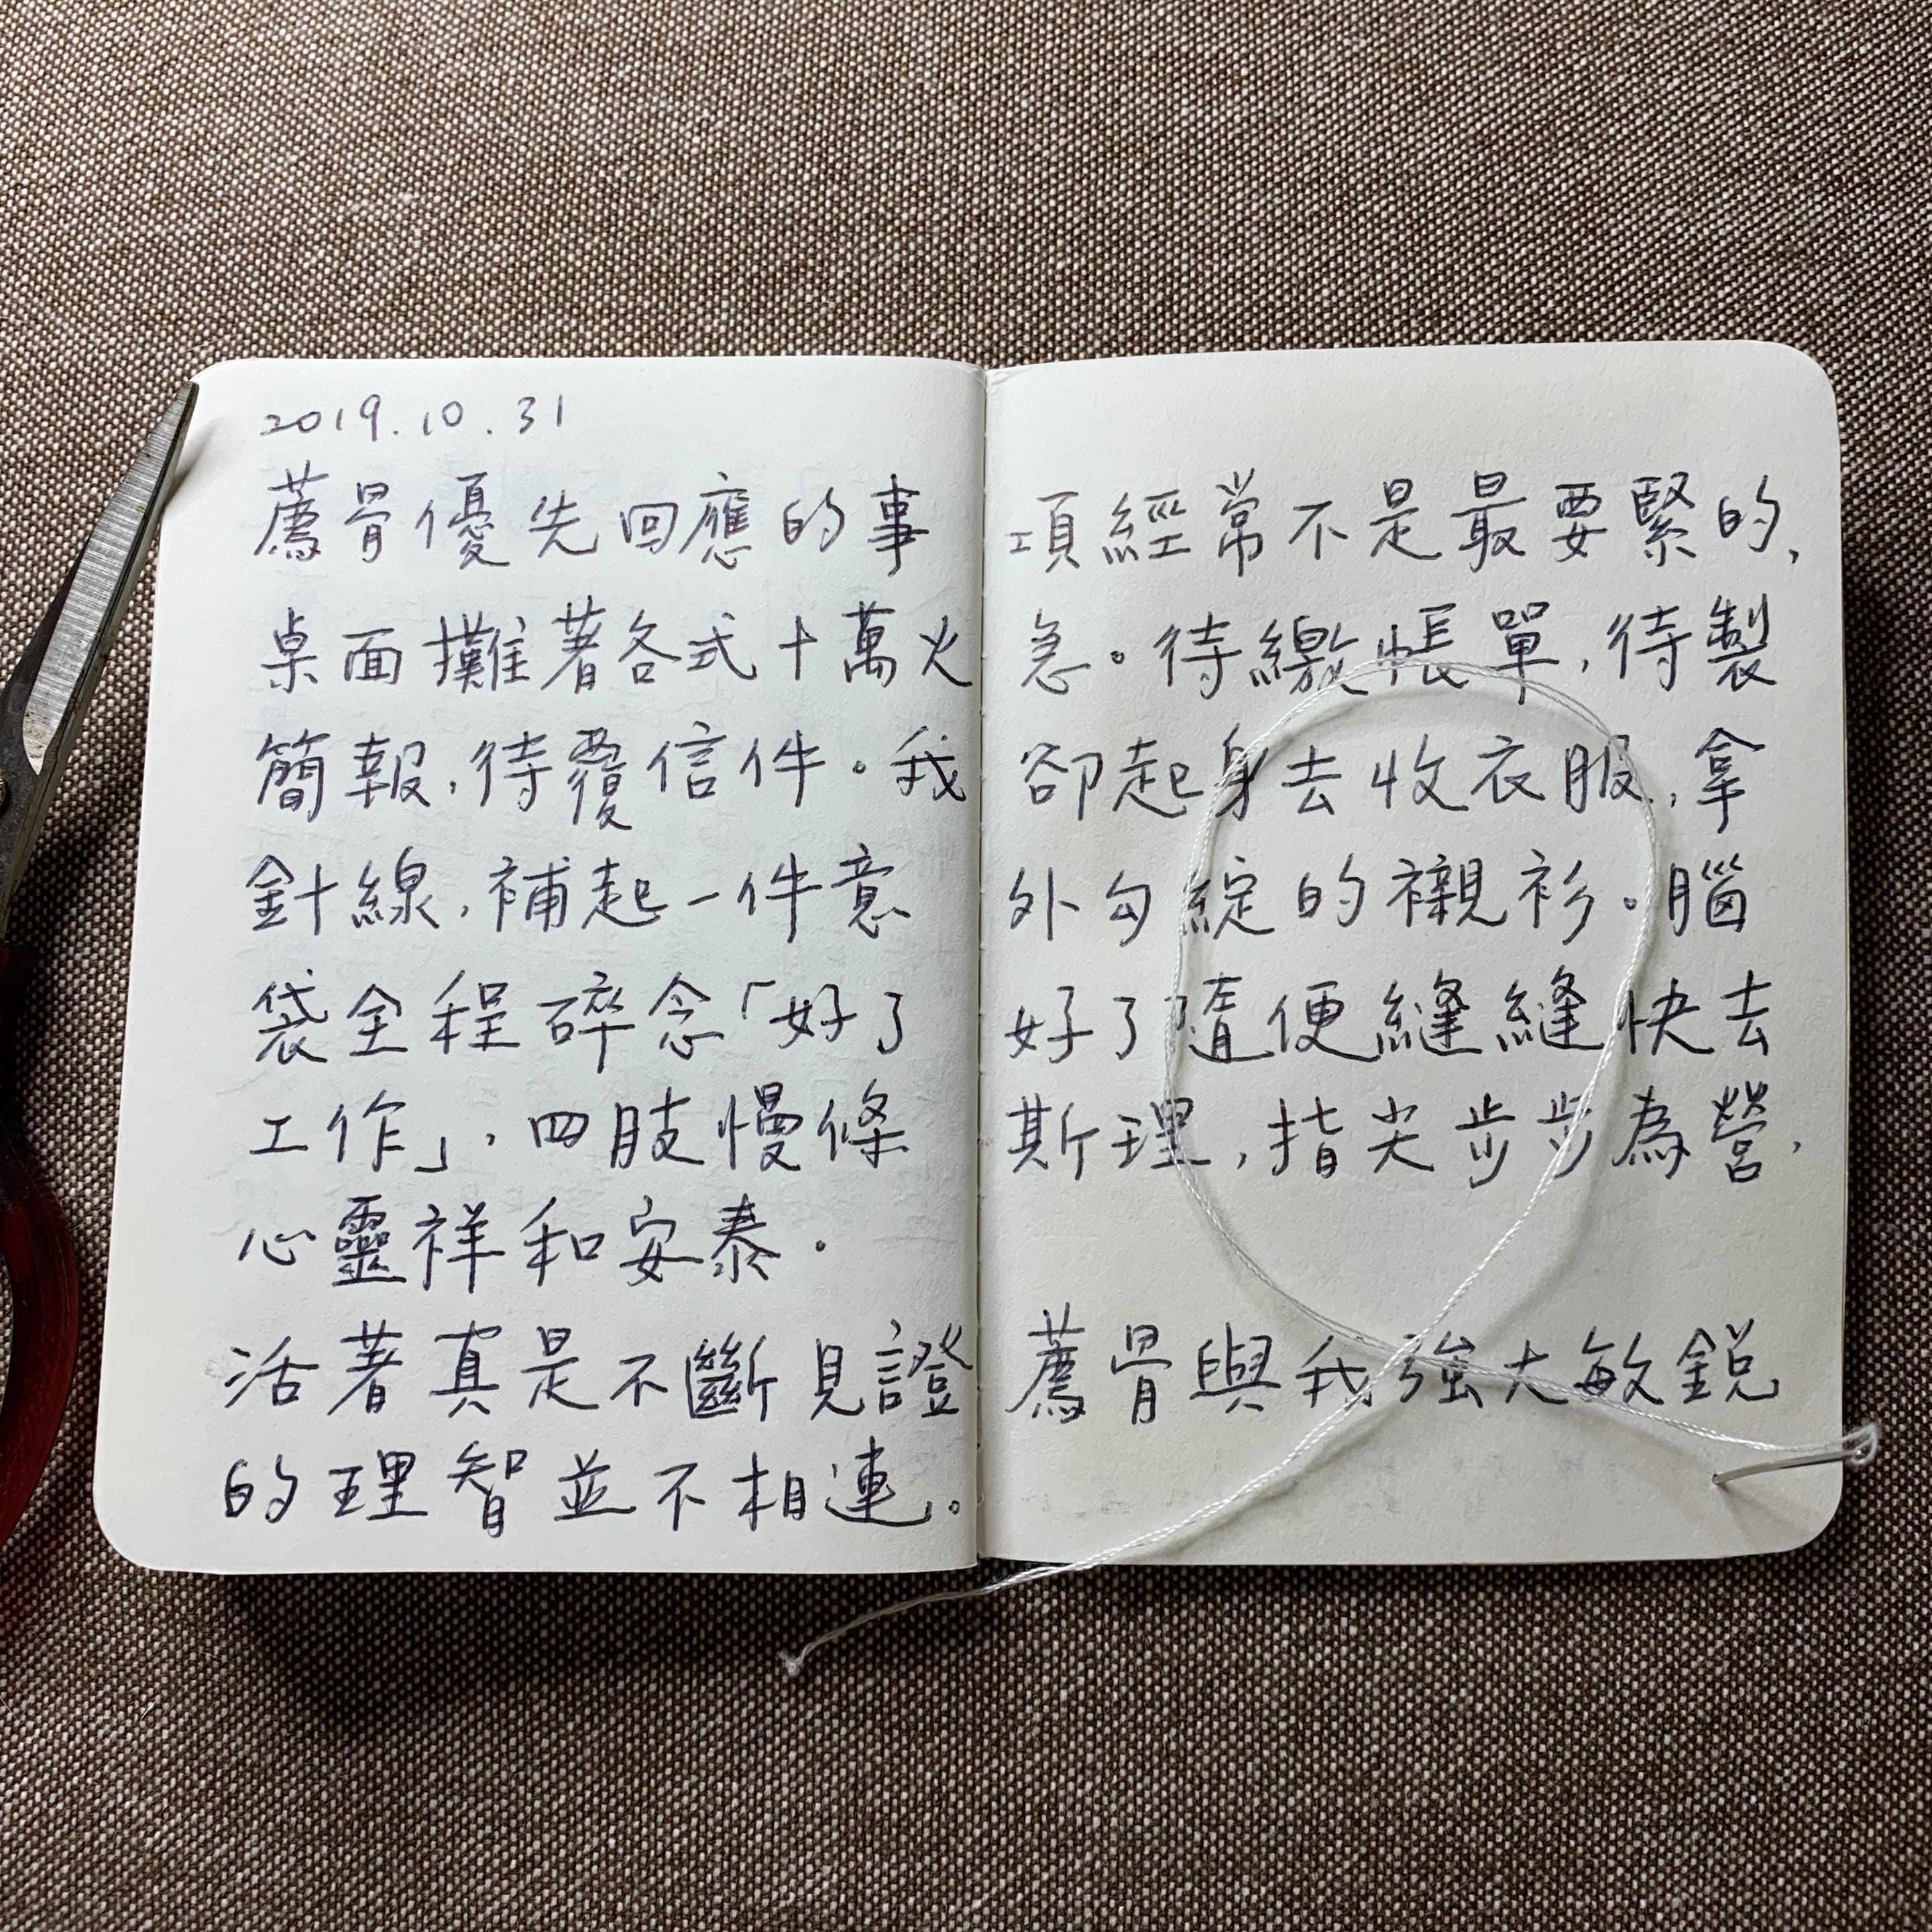 2019.10.31
薦骨優先回應的事項經常不是最要緊的,
桌面攤著各式十萬火急。待繳帳單,待製
簡報,待覆信件。我卻起身去收衣服,拿
針線,補起一件意外勾綻的襯衫。腦
袋全程碎念「好了好了隨便縫縫快去
工作」,四肢慢條斯理,指尖步步為營,
心靈祥和安泰.
活著真是不斷見證薦骨與我強大敏銳
的理智並不相連。